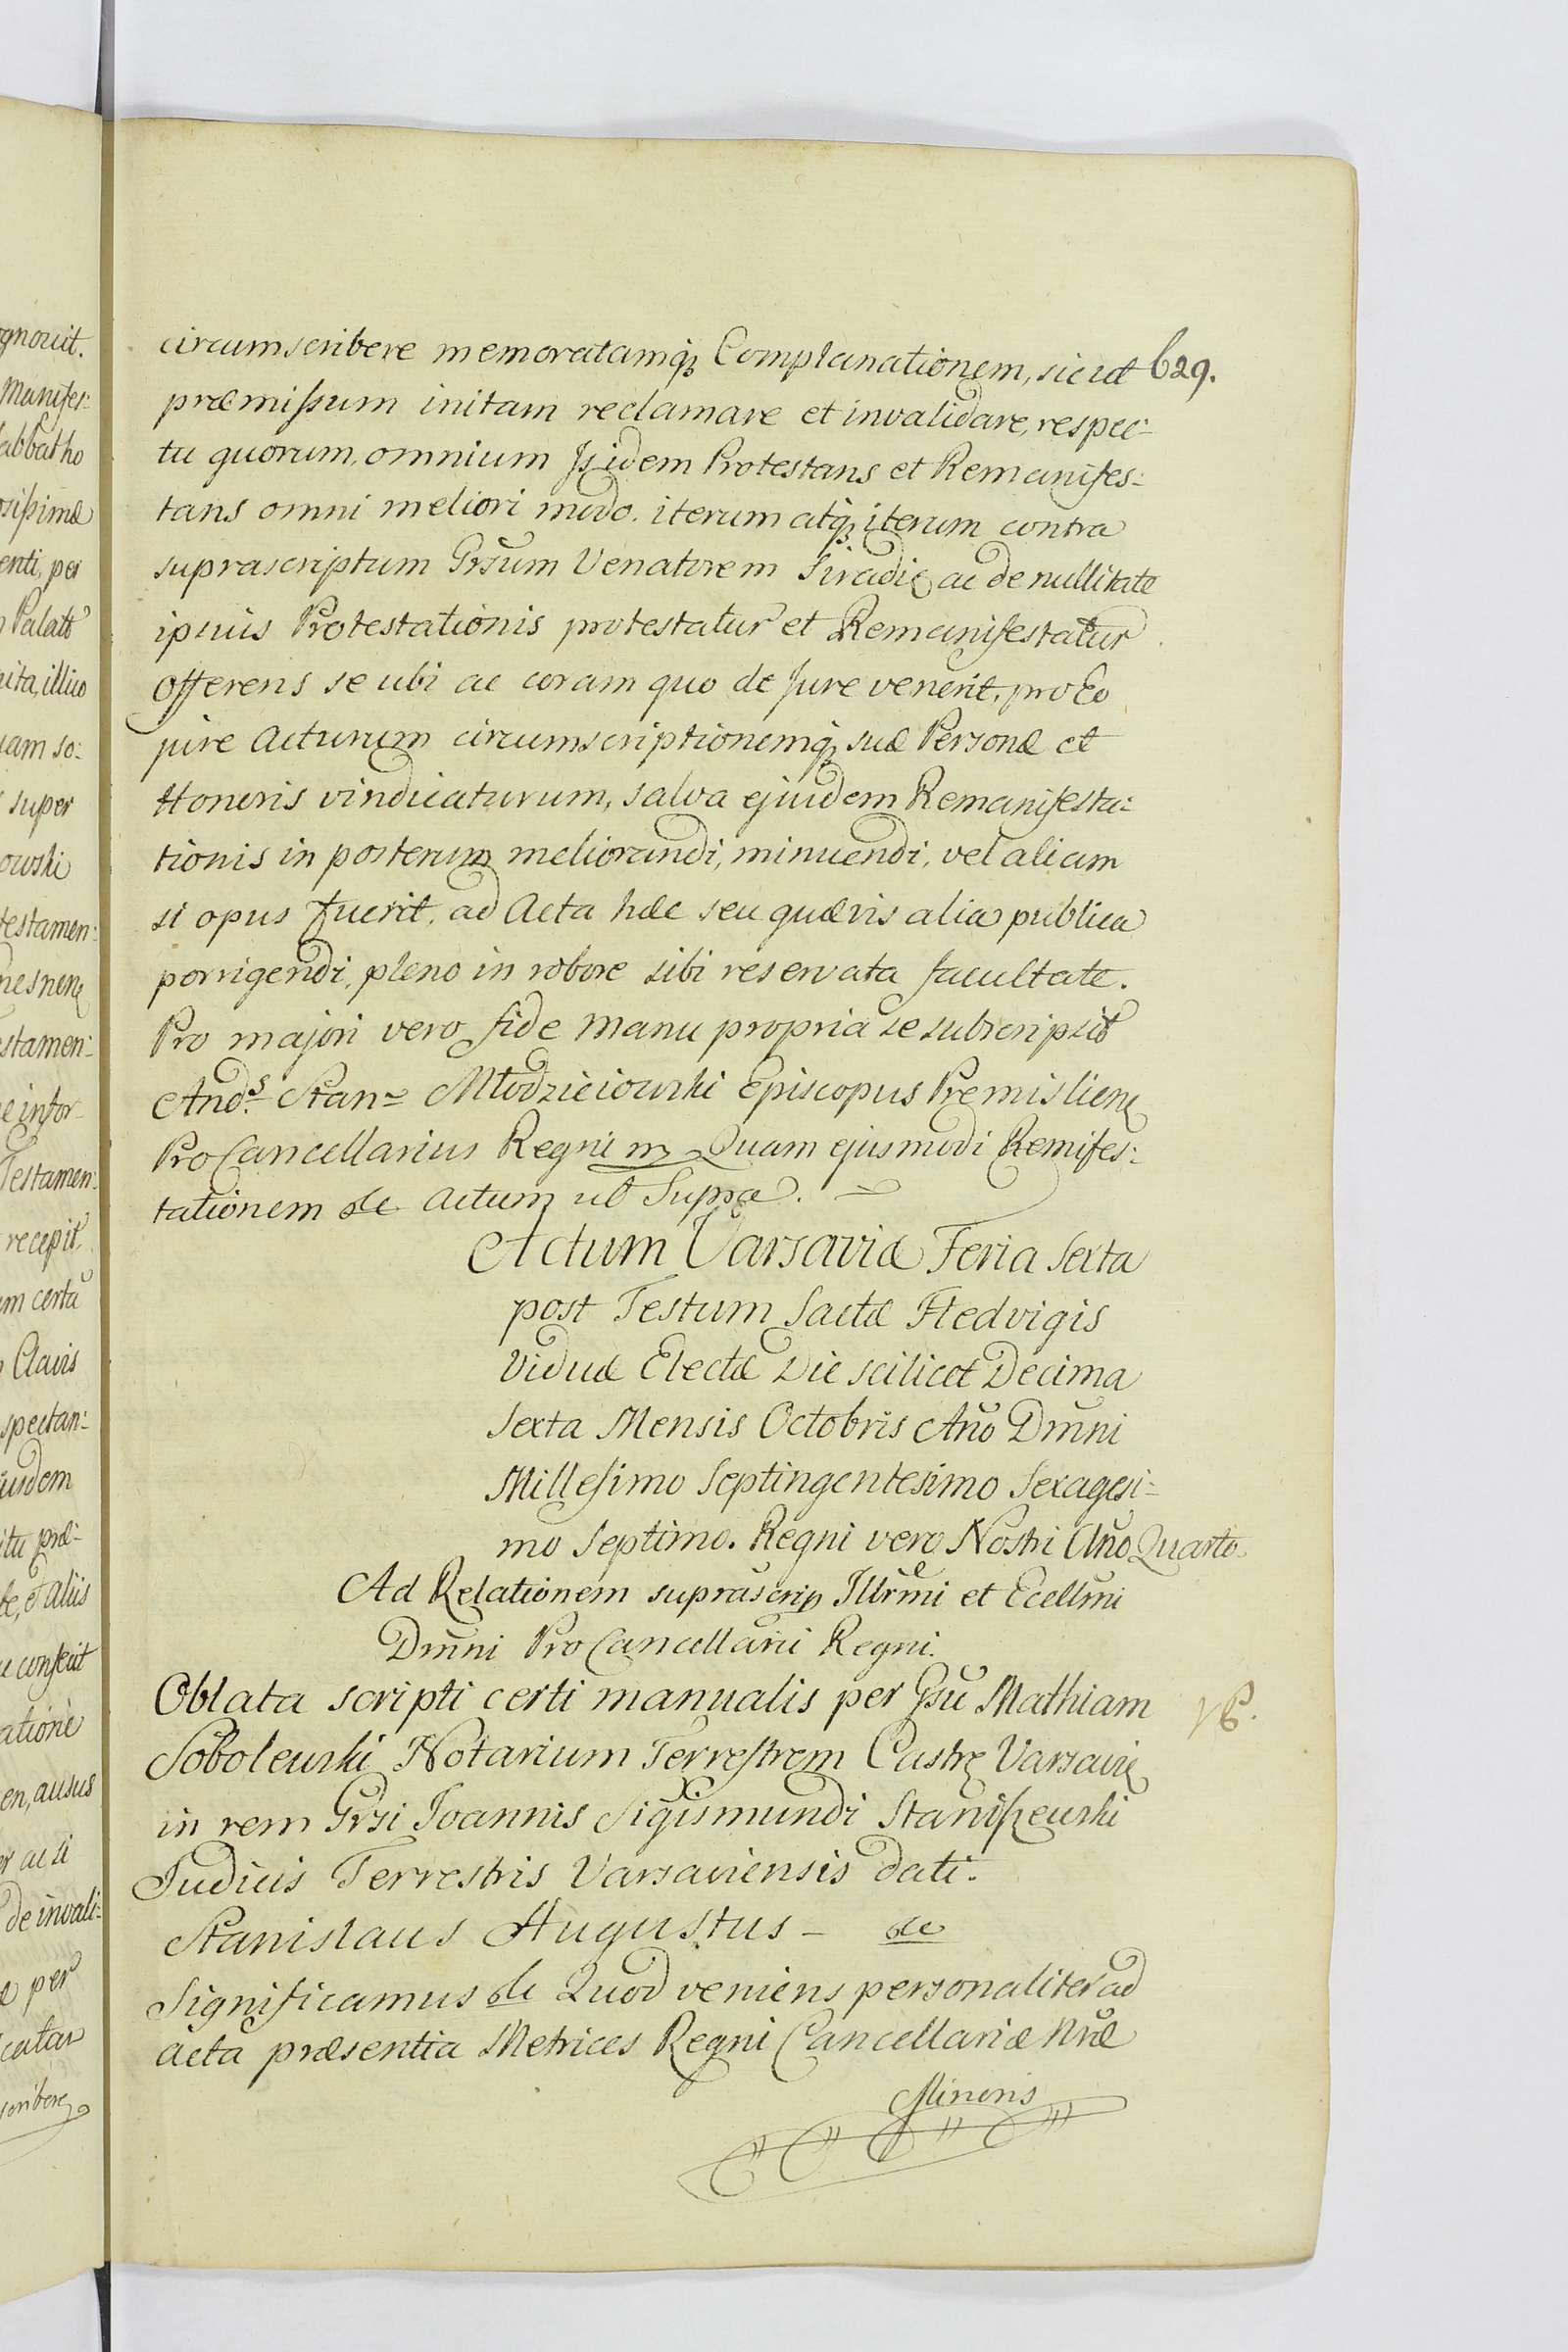 circumscribere memoratamq; Complanationem, sicut 629.
præmissum initam reclamare et invalidare, respec-
tu quorum, omnium Jsidem Protestans et Remanifes:
tans omni meliori modo. iterum atq; iterum contra
suprascriptum Grsum Venatorem Siradię ac de nullitate
ipsius Protestationis protestatur et Remanifestatur
offerens se ubi ac coram quo de Jure venerit, pro Eo
jure acturum circumscriptionemq; suæ Personæ et
Honoris vindicaturum, salva ejusdem Remanifesta:
tionis in posterum meliorandi, minuendi, vel aliam
si opus fuerit, ad Acta hæc seu quævis alia publica
porrigendi, pleno in robore sibi reservata facultate.
Pro majori vero fide manu propria se subscripsit
Ands. Stan. Młodzieiowski Episcopus Premislienę
ProCancellarius Regni m Quam ejusmodi Remifes:
tationem &c Actum ut Supra.
Actum Varsaviæ Feria sexta
post Festum Sactæ Hedvigis
Viduæ Electæ Die scilicet Decima
Sexta Mensis Octobris Ano Dmni
Millesimo Septingentesimo Sexagesi-
mo Septimo. Regni vero Nostri Ano Quarto.
Ad Relationem suprascrip Illrmi et Ecellmi
Dmni ProCancellarii Regni.
Oblata scripti certi manualis per Gsu Mathiam
Sobolewski Notarium Terrestrem Castrę Varsavię
in rem Grsi Joannis Sigismundi Staniszewski
Judicis Terrestris Varsaviensis dati.
Stanislaus Augustus - &c
Significamus &c Quod veniens personaliter ad
acta præsentia Metrices Regni Cancellariæ Nræ
Minoris